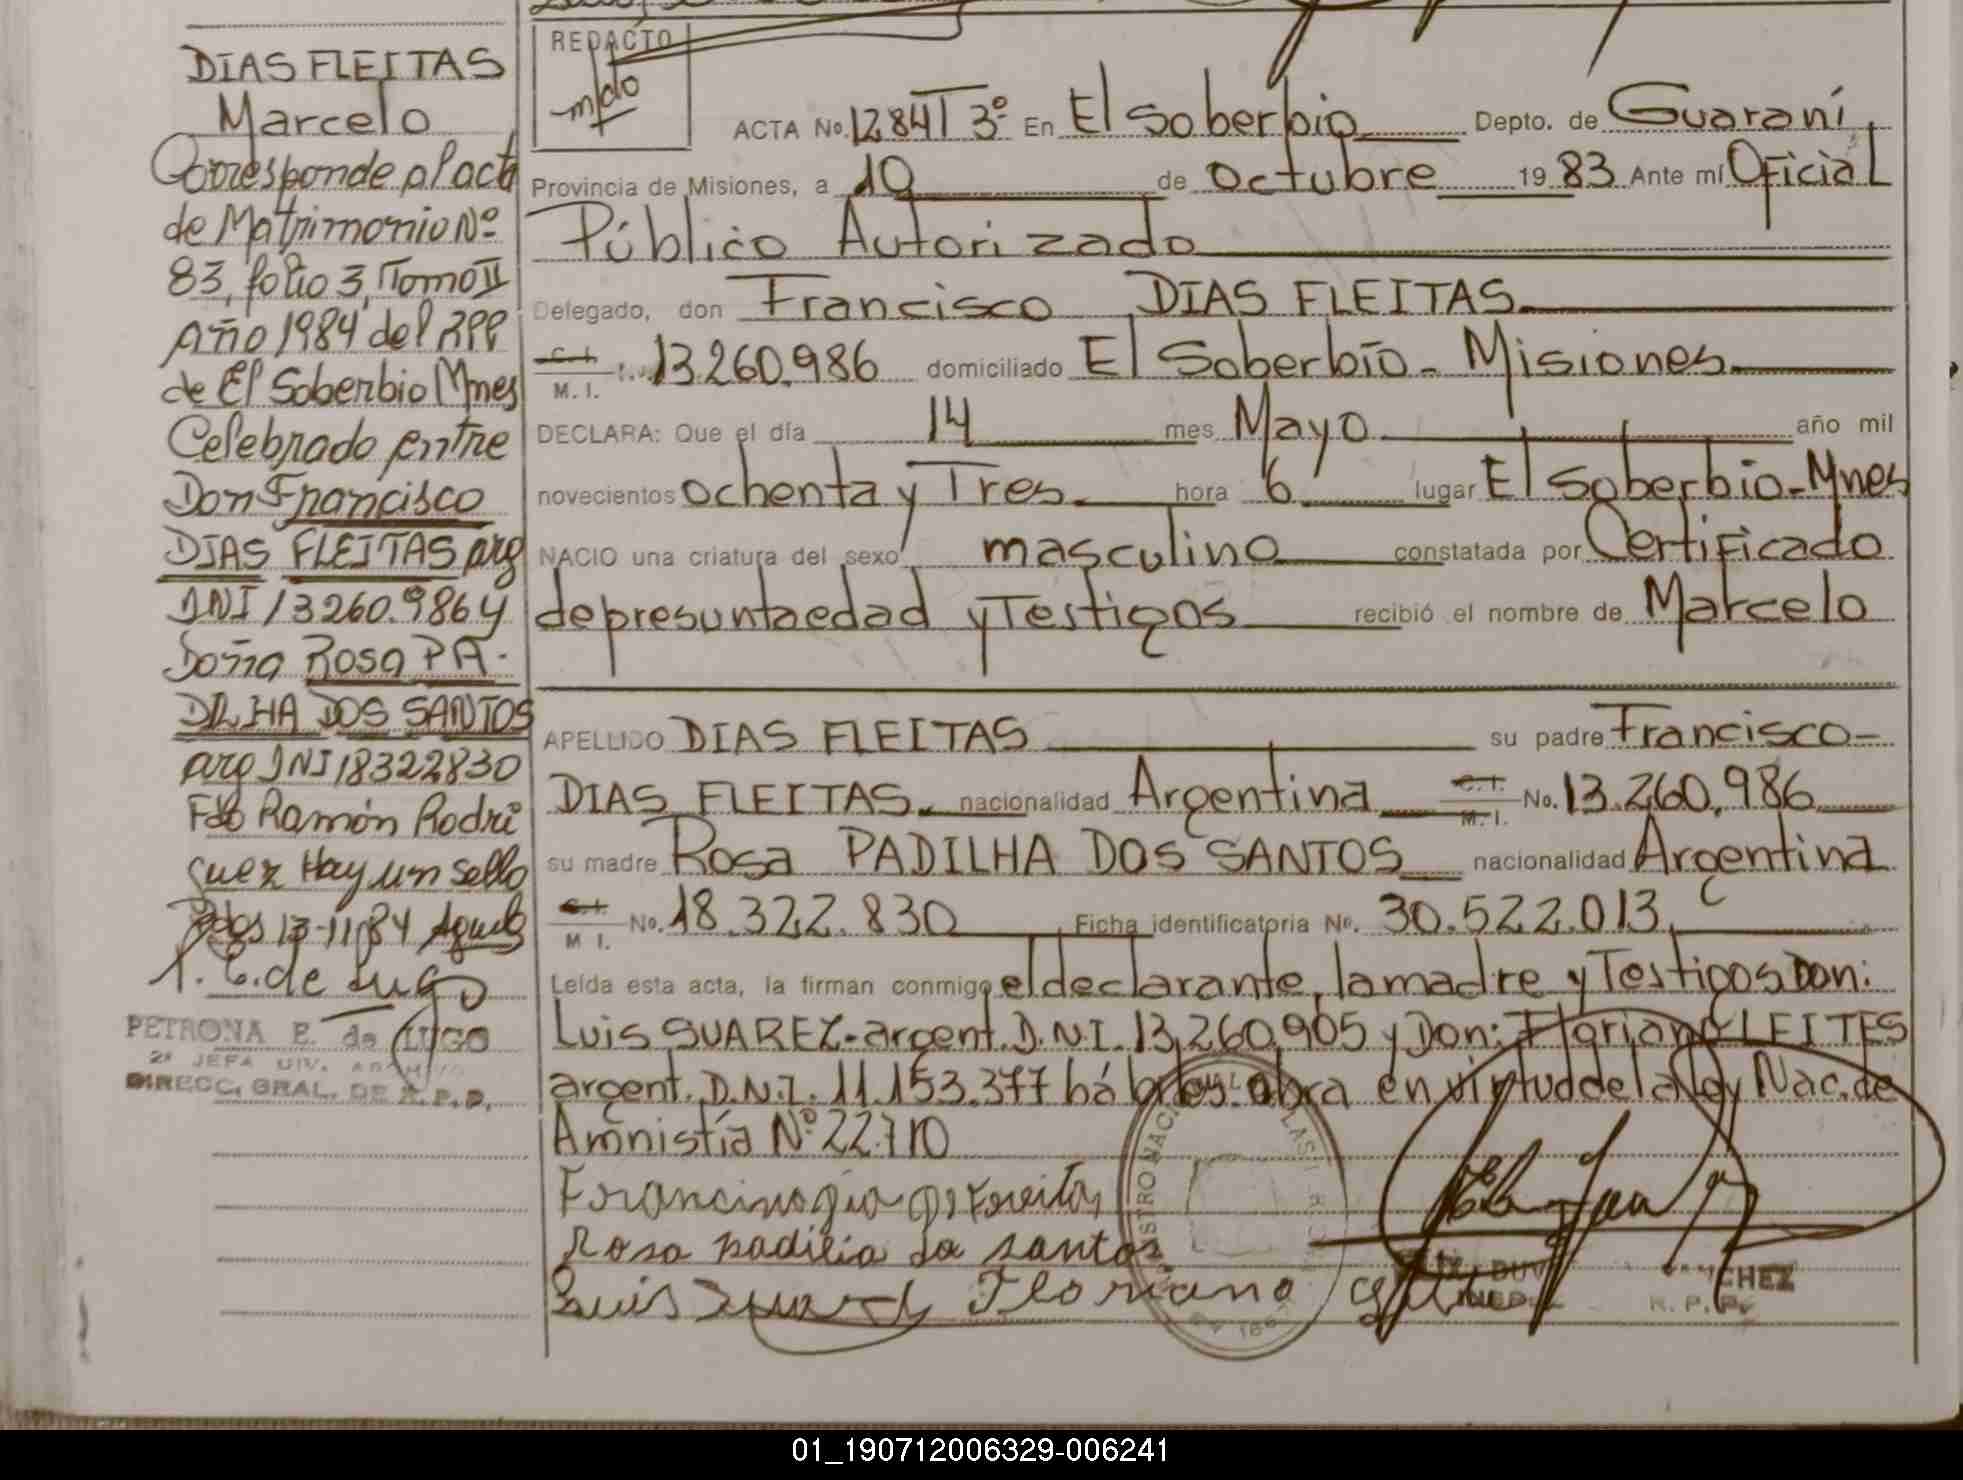 DIAS FLEITAS
Marcelo
Corresponde al acta
de Matrimonio Nº
83, folio 3, Tomo II
Año 1984 del RPP
de El Soberbio Mnes
Celebrado entre
Don Francisco
DIAS FLEITAS arg
DNI 13260.986 y
Doña Rosa PA-
DILHA DOS SANTOS
arg DNI 18322830
Fdo Ramón Rodri
guez Hay un sello
Pdas 13-11-84
P. E. de Lugo
PETRONA E. de LUGO
2ª JEFA DIV. ARCHIVO
DIRECC. GRAL. DE R.P.P.
REDACTO
ACTA No. 1284 T 3º En El Soberbio Depto. de Guaraní
Provincia de Misiones, a 10 de Octubre 19 83 Ante mí Oficial
Público Autorizado
Delegado, don Francisco DIAS FLEITAS
C.I. M. I. 13.260.986 domiciliado El Soberbio - Misiones
DECLARA: Que el día 14 mes Mayo año mil
novecientos ochenta y Tres hora 6 lugar El Soberbio - Mnes
NACIO una criatura del sexo masculino constatada por Certificado
de presunta edad y Testigos recibió el nombre de Marcelo
APELLIDO DIAS FLEITAS su padre Francisco -
DIAS FLEITAS. nacionalidad Argentina C.I. M. I. No. 13.260.986
su madre Rosa PADILHA DOS SANTOS nacionalidad Argentina
C.I. M I. No. 18.322.830 Ficha identificatoria No. 30.522.013
Leída esta acta, la firman conmigo el declarante, la madre y Testigos Don:
Luis SUAREZ - argent. D.N.I. 13.260.905 y Don: Floriano LEITES
argent. D.N.I. 11.153.377 hábiles. obra en virtud de la Ley Nac. de
Amnistía Nº 22.710
Rosa padilia da santos
Luis Suarez Floriano
R. P. P.
01_190712006329-006241